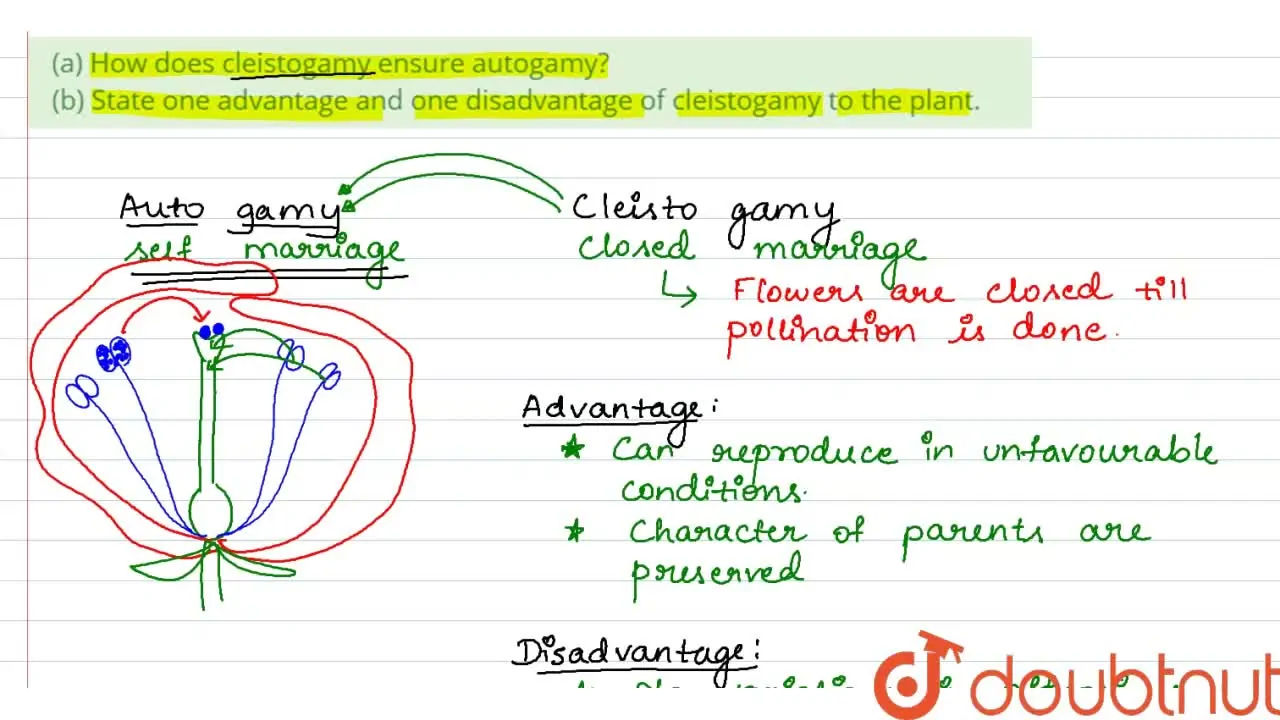 (a) How does cleistogamy ensure autogamy?
(b) State one advantage and one disadvantage of cleistogamy to the plant.
Auto gamy
self marriage
Cleisto gamy
Closed marriage
Flowers are closed till
pollination is done.
Advantage:
★ Can reproduce in unfavourable
conditions.
★ Character of parents are
preserved
Disadvantage:
doubtnut